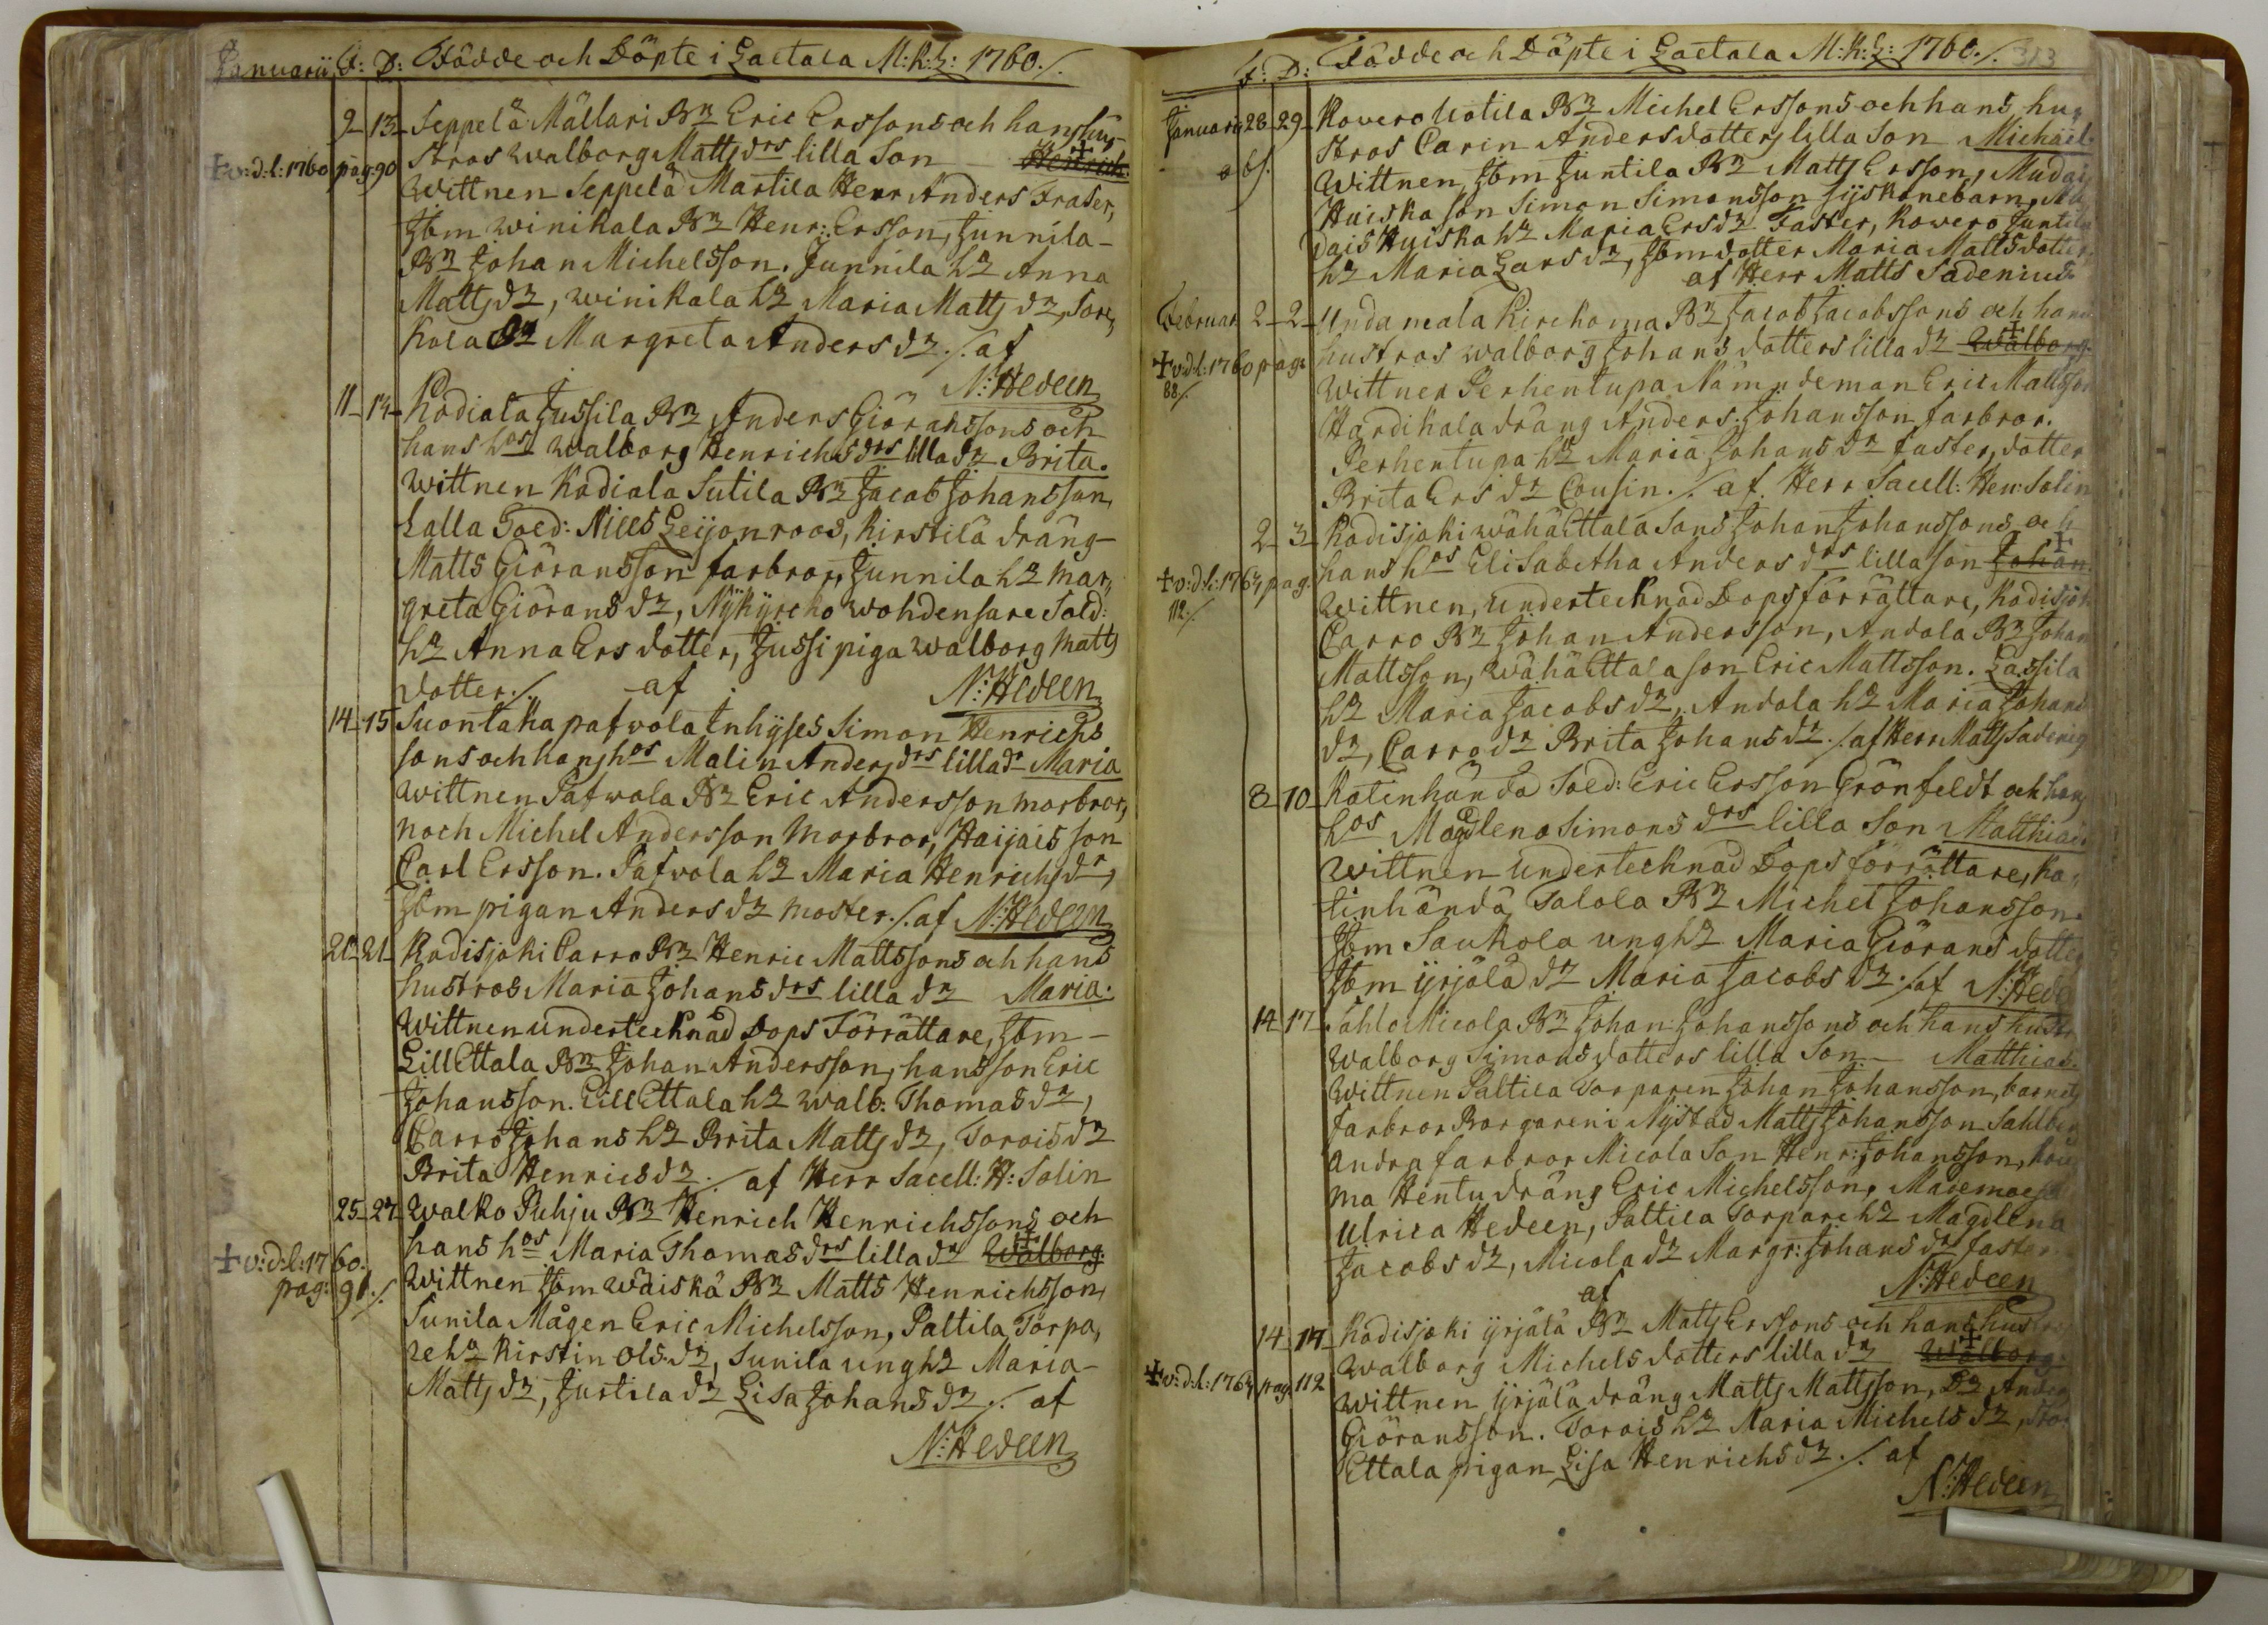 Januarii F: D: Födde och Döpte i Laetala M:K:L: 1760./.
9 13 Seppelä Mällari Bn Eric Erssons och hans hu-
+ v:d:l: 1760 pag: 90 stros Walborg Matts drs lilla Son Henrich.
Wittnen Seppelä Martila Herr Anders Fraser,
Ibm Winikala Bn Henr: Ersson, Junnila-
Bn Johan Michelsson. Junnila h Anna
Matts dr, Winikala h Maria Matts dr, Sore,
kola Margreta Anders dr ./. af
N: Hedeen
11 14 Kodiala Jussila Bn Anders Giöranssons och
hans hos Walborg Henrichs drs lilla dr Brita.
Wittnen Kodiala Sutila Bn Jacob Johansson,
Lalla Sold: Niels Leijonroos, Kirstilä dräng
Matts Giöransson farbror, Junnila h Mar,
greta Giörans dr, Nykyrcko Wohdensare Sold:
h Anna Ers dotter, Jussi piga Walborg Matts
dotter ./. af N: Hedeen
14 15 Suontaka pafwola Inhyses Simon Henrichs
sons och hans hos Malin Anders drs lilla dr Maria
Wittnen Pafwola Bn Eric Andersson morbror,
noch Michel Andersson Morbror, Haijais son
Carl Ersson. Pafvola h Maria Henrichs dr,
Ibm pigan Anders dr moster ./. af N: Hedeen
20 21 Kadisjoki Carro Bn Henric Mattssons och hans
hustros Maria Johans drs lilla dr Maria.
Wittnen undertecknad Dops Förrättare, Ibm-
Lill Ettala Bn Johan Andersson, hans son Eric
Johansson. Lill Ettala h Walb: Thomas dr,
Carro Johans h Brita Matts dr, Torois dr
Brita Henrics dr ./. af Herr Sacell: H: Solin
25 27 Walko Puhju Bn Henrich Henrichssons och
+ v:d:l: 1760. hans hos Maria Thomas drs lilla dr Walborg.
pag: 91./. Wittnen Ibm Wäiskä Bn Matts Henrichsson,
Sunila Mågen Eric Michelsson, Paltila Torpa,
re h Kirstin Ols dr, Sunila ung h Maria-
Matts dr, Justila dr Lisa Johans dr ./. af
N: Hedeen
F: D: Födde och Döpte i Laetala M:K:L: 1760./. 313
Januarii 28 29 Kovero Uotila Bn Michel Erssons och hans hu,
stros Carin Andersdotters lilla Son Michael.
Wittnen Ibm Juntila Bn Matts Ersson, Mudais
Huiska son Simon Simonsson syskonebarn, Mu
dais Huiska h Maria Ers dr Faster, Kovero Juntila
h Maria Lars dr, Ibm dotter Maria Mattsdotter
af Herr Matts Sadenius
Februar 2 2 Undamala Kirckoma Bn Jacob Jacobssons och hans
+ v:d:l: 1760 pag: hustros Walborg Johans dotters lilla dr Walborg.
88/. Wittnen Perhentupa Nämndeman Eric Mattsson
Hardikala dräng Anders Johansson farbror.
Perhentupa h Maria Johans dr faster, dotter
Brita Ers dr Cousin ./. af Herr Sacell: Hen: Solin
2 3 Kadisjoki Wähä Ettala Sons Johan Johanssons och
+ v:d:l: 1764 pag. hans hos Elisabetha Anders drs lilla son Johan.
112./. Wittnen, undertecknad Dops förrättare, Kadisjok
Carro Bn Johan Andersson, Andola Bn Johan
Mattsson, Wähä Ettala son Eric Mattsson. Lassila
h Maria Jacobs dr, Andola h Maria Johans
dr, Carro dr Brita Johans dr ./. af Herr Matts Sadenig
8 10 Katinhända Sold: Eric Ersson Grönfeldt och hans
hos Magdlena Simons drs lilla Son Matthias.
Wittnen undertecknad Dops förrättare, Ka,
tinhändä Talola Bn Michel Johansson
Ibm Saukola ung h Maria Giörans dotter
Ibm yrjälä dr Maria Jacobs dr ./. af N: Hede
14 17 Sahlo Nicola Bn Johan Johanssons och hans hustr
Walborg Simons dotters lilla Son Matthias.
Wittnen Paltila Torparen Johan Johansson, barnets
farbror Borgaren i Nystad Matts Johansson Sahlberg
andra farbror Nicola Son Henr: Johansson,
ma Hentu dräng Eric Michelsson,
Ulrica Hedeen, Paltila Torpare h Magdlena
Jacobs dr, Nicola dr Margr: Johans dr faster
af N: Hedeen
14 17 Kadisjoki yrjälä Bn Matts Erssons och hans hustro
Walborg Michels dotters lilla dr Walborg.
+ v:d:l: 1764 pag: 112 Wittnen yrjälä dräng Matts Mattsson,
Giöransson. Torois h Maria Michels dr, Stor
Ettala pigan Lisa Henrichs dr ./. af
N: Hedeen